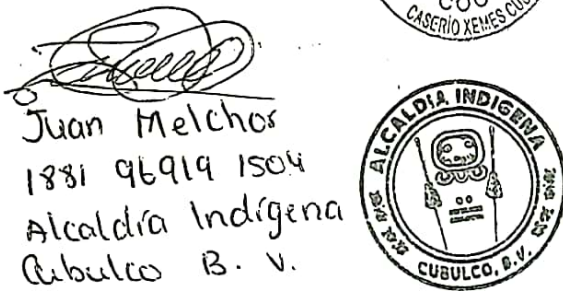 CASERIO XEMES
Juan Melchor
1881 96919 1504
Alcaldía Indígena
Cubulco B. V.
ALCALDIA INDIGENA
CUBULCO, B.V.